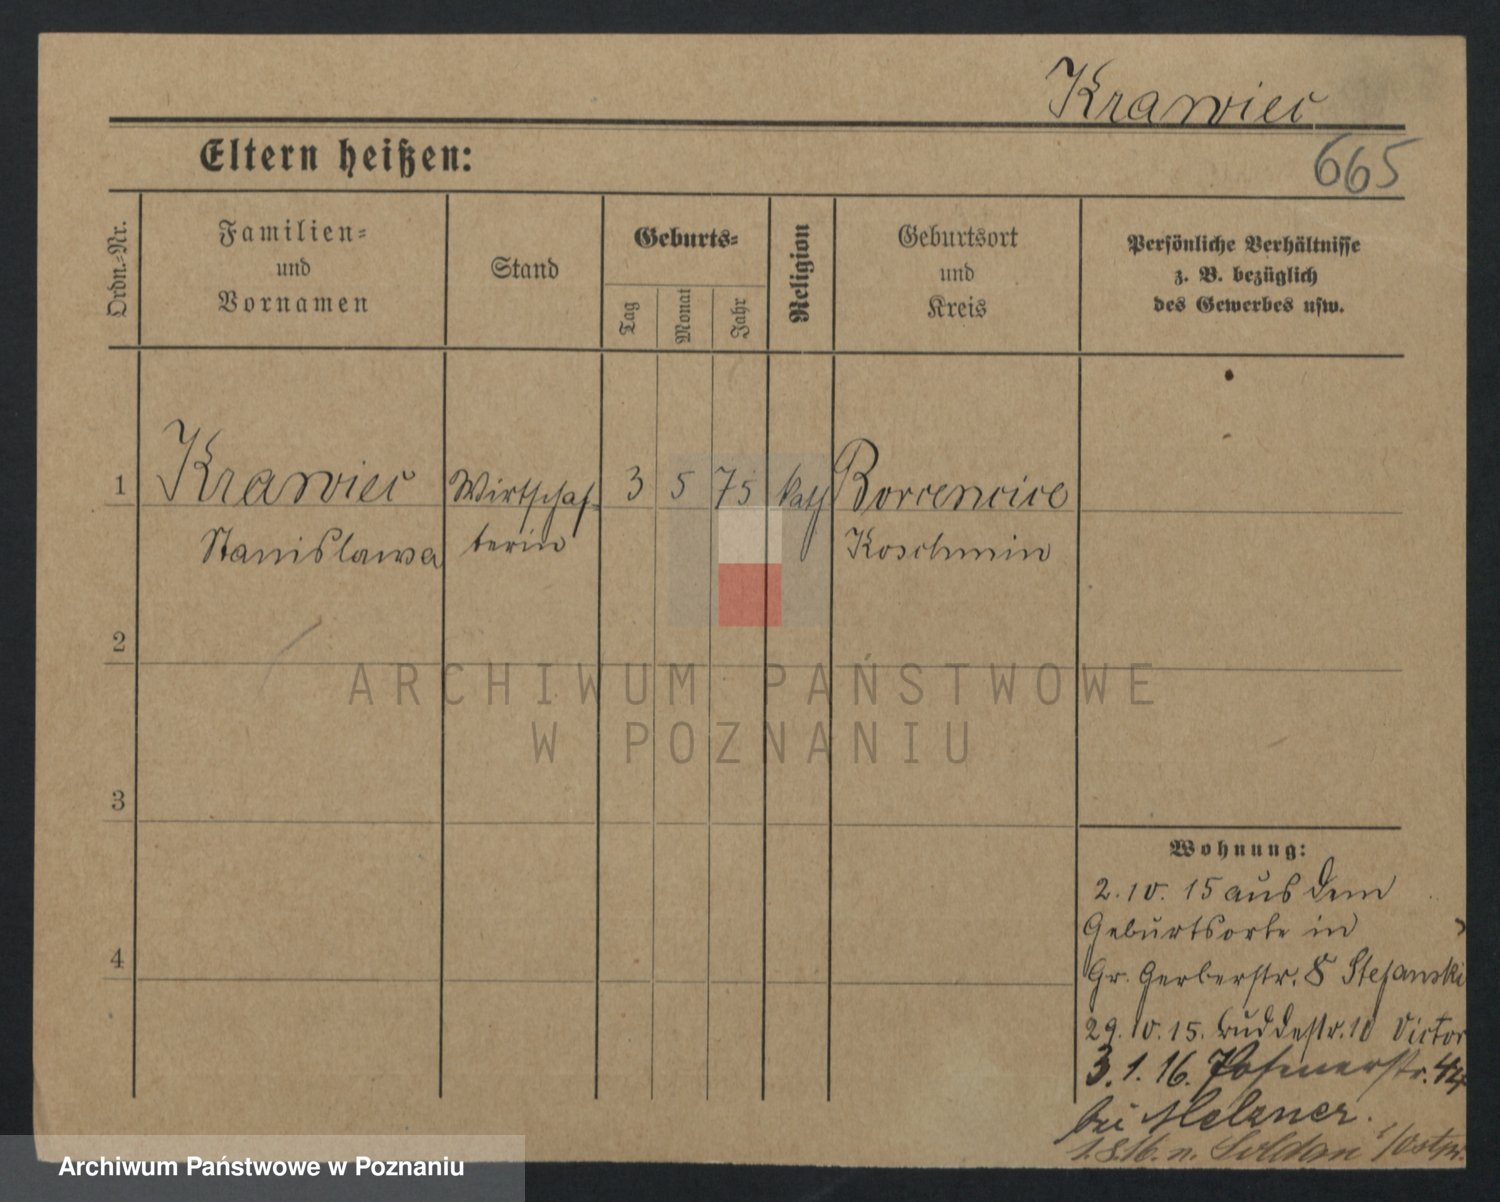 Krawiec
Eltern heißen:
665
Ordn.-Nr.
Familien-
und
Vornamen
Stand
Geburts-
Tag
Monat
Jahr
Religion
Geburtsort
und
Kreis
Persönliche Verhältnisse
z. B. bezüglich
des Gewerbes usw.
1 Krawiec Wirtschaf- 3 5 75 kath Borrencice
Stanislawa terin Koschmin
2
3
4
ARCHIWUM PAŃSTWOWE
W POZNANIU
Wohnung:
2.10.15 aus dem
Geburtsorte in
Gr. Gerberstr. 8 Stefanski
29.10.15. Buddestr. 10 Victor
3.1.16. Posenerstr. 44
bei Melzner.
1.8.16. n. Soldau i/Ostpr.
Archiwum Państwowe w Poznaniu